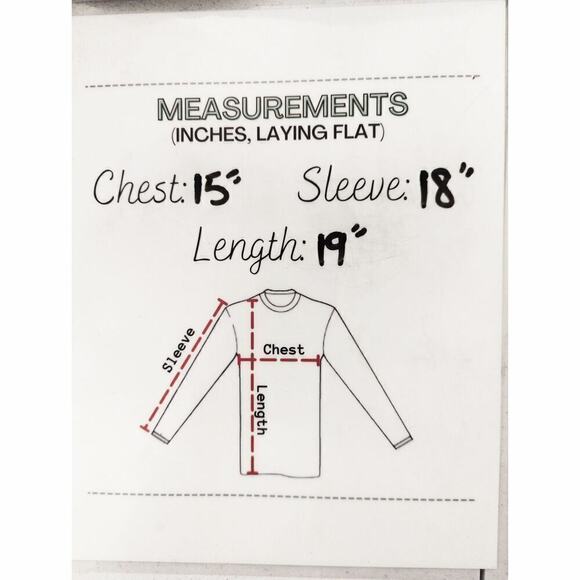 MEASUREMENTS
(INCHES, LAYING FLAT)
Chest: 15" Sleeve: 18"
Length: 19"
Sleeve
Chest
Length